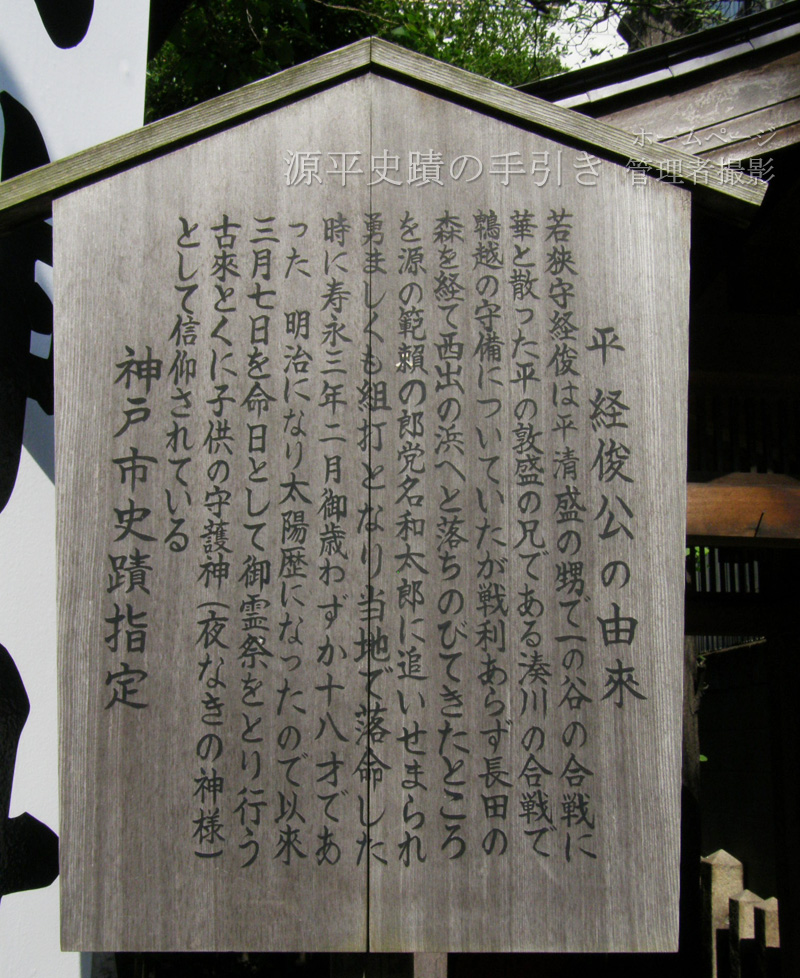 源平史蹟の手引き
ホームページ
管理者撮影
平経俊公の由来
若狭守経俊は平清盛の甥で一の谷の合戦に
華と散った平の敦盛の兄である湊川の合戦で
鵯越の守備についていたが戦利あらず長田の
森を経て西出の浜へと落ちのびてきたところ
を源の範頼の郎党名和太郎に追いせまられ
勇ましくも組打となり当地で落命した
時に寿永三年二月御歳わずか十八才であ
った 明治になり太陽歴になったので以来
三月七日を命日として御霊祭をとり行う
古来とくに子供の守護神(夜なきの神様)
として信仰されている
神戸市史蹟指定